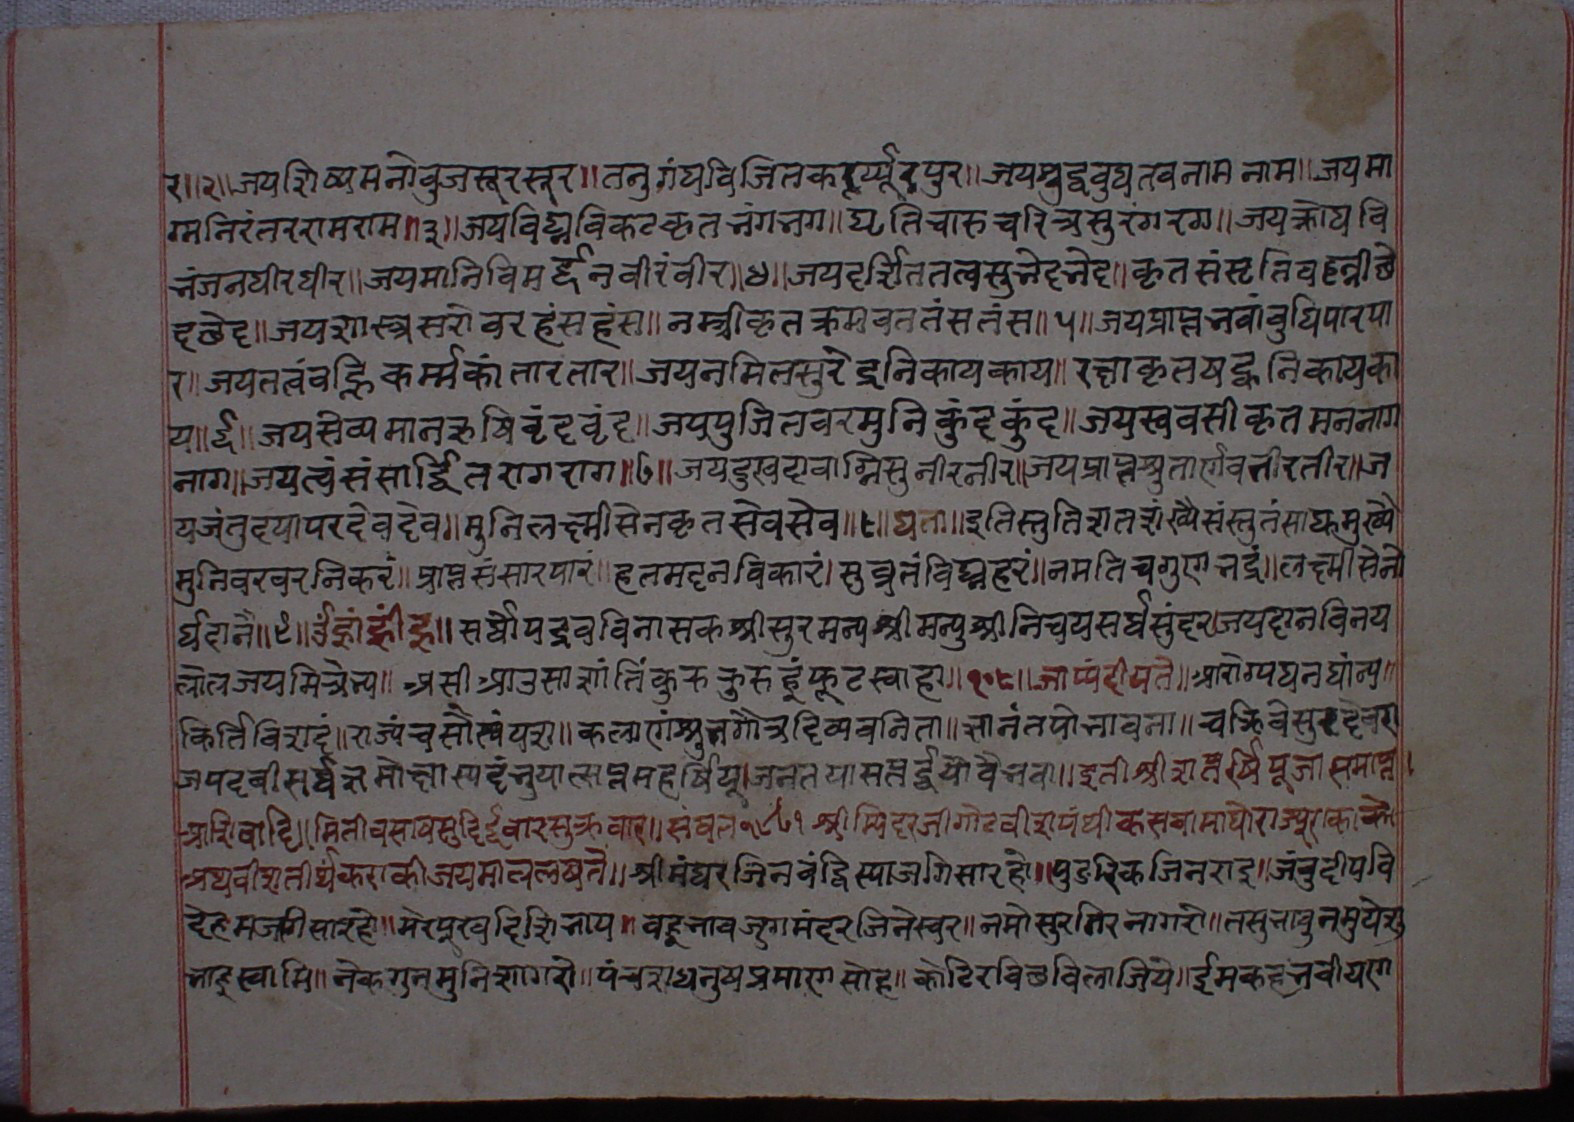 र॥२॥जयशिष्यमनोवुजसूरसूर॥तनुगंधविजितकर्प्पूरपुर॥जयषुद्दवुधतवनामनाम॥जयमा
ग्मनिरंतररामराम॥३॥जयविघ्नविकटकृतभंगभग॥घृतिचारुचरित्रसुरंगरग॥जयक्रोधवि
भंजनधीरधीर॥जयमानिविमर्द्दनवीरंवीर॥४॥जयदर्शिततत्वसुभेदभेद॥कृतसंसृतिवहन्नीछे
दछेद॥जयशास्त्रसरोवरहंसहंस॥नम्त्रीकृतक्रमवततंसतंस॥५॥जयप्राप्तभवांवुधिपारपा
र॥जयतत्वंवह्निकर्म्मकांतारतार॥जयनमितसुरेंद्रनिकायकाय॥रक्षाकृतषट्कनिकायका
य॥६॥जयसेव्यमानरुषिवृंदवृंद॥जयपुजितवरमुनिकुंदकुंद॥जयस्ववसीकृतमननाग
नाग॥जयत्वंसंसार्द्दितरागराग॥७॥जयदुखदावाग्निसुनीरनीर॥जयप्राप्तश्रुतार्णवतीरतीर॥ज
यजंतुदयापरदेवदेव॥मुनिलक्ष्मीसेनकृतसेवसेव॥८॥घता॥इतिस्तुतिशतशंख्यैसंस्तुतंसाधुमुख्यै
मुनिवरवरनिकरं॥प्राप्तसंसारपारं॥हतमदनविकारं।सुव्रतंविघ्नहरं॥नमतिचगुणभद्रं॥लक्ष्मीसेनो
र्घदानै॥९॥ॐह्रांह्रींह्रू॥सर्वोपद्रवविनासकश्रीसुरमन्यश्रीमन्युश्रीनिचयसर्वसुंदर।जयदानविनय
लोलजयमित्रेन्य॥असीआउसाशांतिंकुरुकुरुहूंफूटस्वाहा॥१०८॥जाप्यंदीयते॥आरोग्यधनधांन्य॥
किर्तिविशदं॥राज्यंचसौख्यंयश॥कलाणंश्रुभगोत्रदिव्यवनिता॥ज्ञानंतपोभावना॥चक्रिवेसुरदेवरा
जपदवीसर्वज्ञमोक्षास्पदंभुयात्सप्तमहर्षिपू।जनतयासतर्द्दयोवैभवा॥इतीश्रीशप्तर्षिपूजासमाप्त।
आशिवादि॥मितीवसाषसुदि
अथवीशतीर्थकराकीजयमालालषते॥श्रीमंधरजिनवंदिस्पाजगिसारहो॥पुडरिकजिनराइ॥जंवुदीपवि
देहमजगीसारहो॥मेरपूरवदिशिभाय॥वहूभावजुगमंदरजिनेस्वर॥नमोसुरगिरनागरो॥तसुभावुनमुयेशु
भाइस्वामि॥नेकगुनमुनिशागरो॥पंचशधनुषप्रमाणसोह॥कोटिरविछविलाजिये॥ईमकहतभवीयण